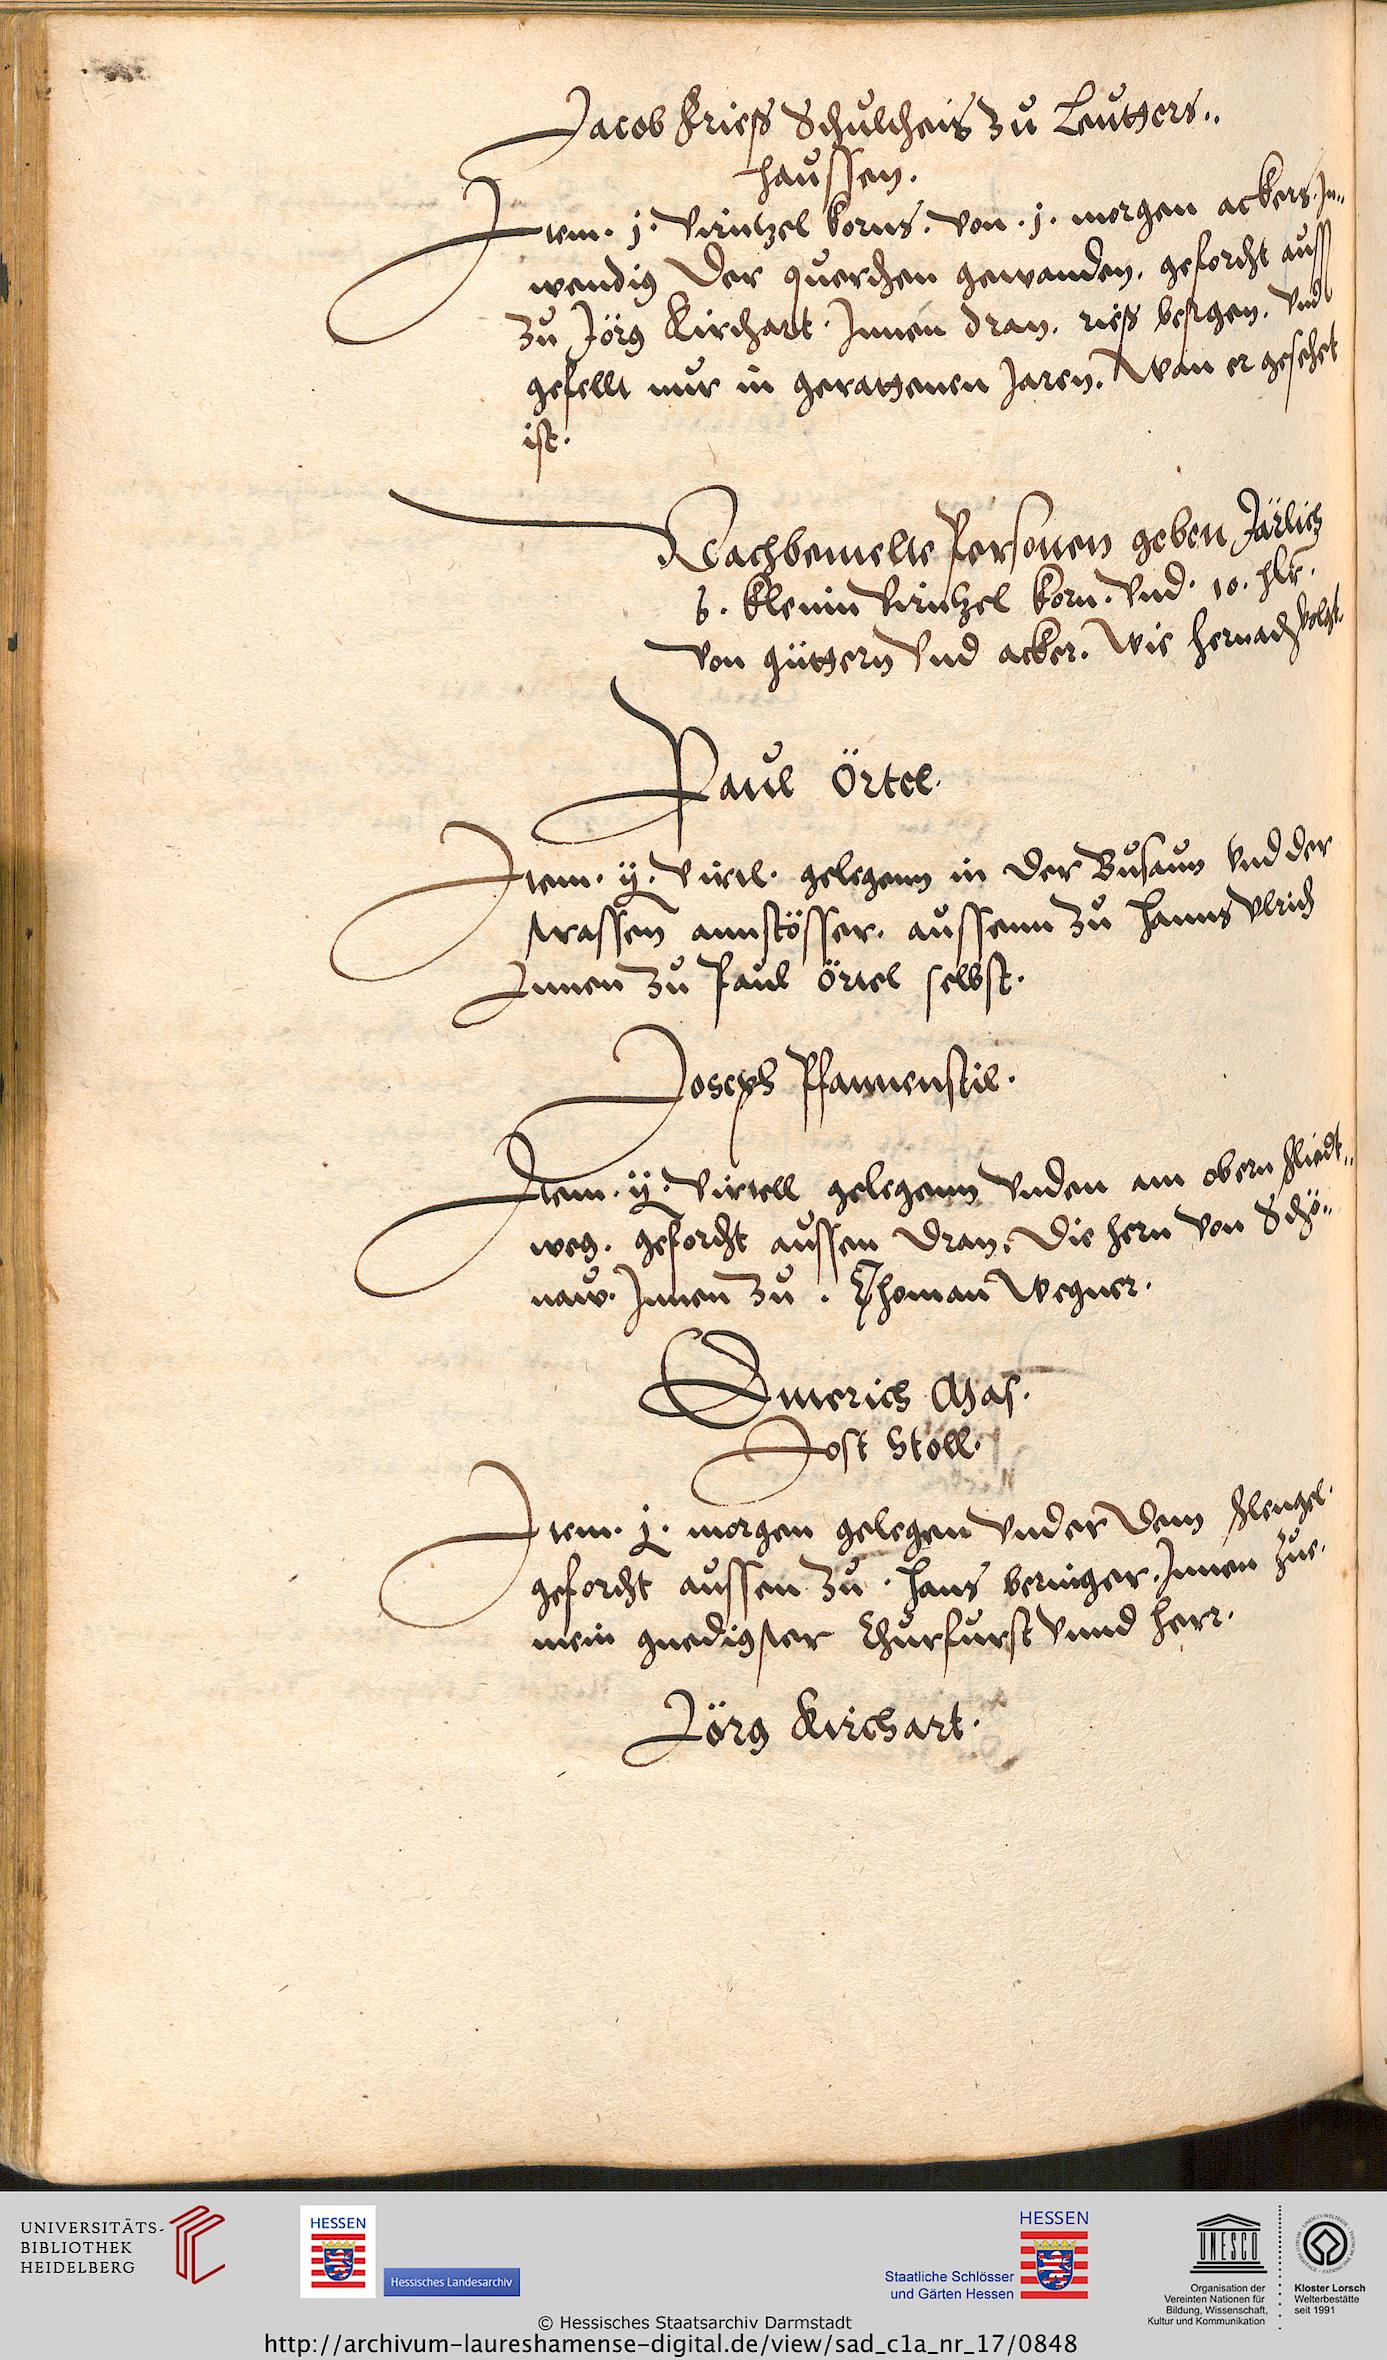 Jacob Frieß Schultheis zů Leutters..
haussen.
Item. j. virntzel korns. von. j. morgen ackers. In..
wendig der querchen gewanden. geforcht auss
zů Jörg Kirchart. Innen dran. rieß besigen. vnd
gefellt nur in gerattenen Jaren. Wan er gesehet
ist.
Nachbemelte Personen geben Järlich
6. klenin virntzel korn. vnd. 10. hlr.
von güttern vnd acker. Wie hernach volgt.
Paul Örtel.
Item. ij. virtl. gelegenn in der Busaun vnd der
strassen annstösser. aussenn zů Hanns Vlrich
Innen zů Paul Örtel selbst.
Joseph Pfannenstil.
Item. ij. virtell gelegenn vnden am obern Riedt..
weg. geforcht aussen dran. die hern von Schö..
naw. Innen zů. Thoman Wegner.
Emerich Mas.
Jost Stoll.
Item. j. morgen gelegen vnder dem Flengel.
geforcht aussen zů. Hans beringer. Innen zue.
mein gnedigster Churfurst vnnd herr.
Jörg Kirchart.
UNIVERSITÄTS-
BIBLIOTHEK
HEIDELBERG
HESSEN
Hessisches Landesarchiv
HESSEN
Staatliche Schlösser
und Gärten Hessen
UNESCO
Organisation der
Vereinten Nationen für
Bildung, Wissenschaft,
Kultur und Kommunikation
Kloster Lorsch
Welterbestätte
seit 1991
© Hessisches Staatsarchiv Darmstadt
http://archivum-laureshamense-digital.de/view/sad_c1a_nr_17/0848